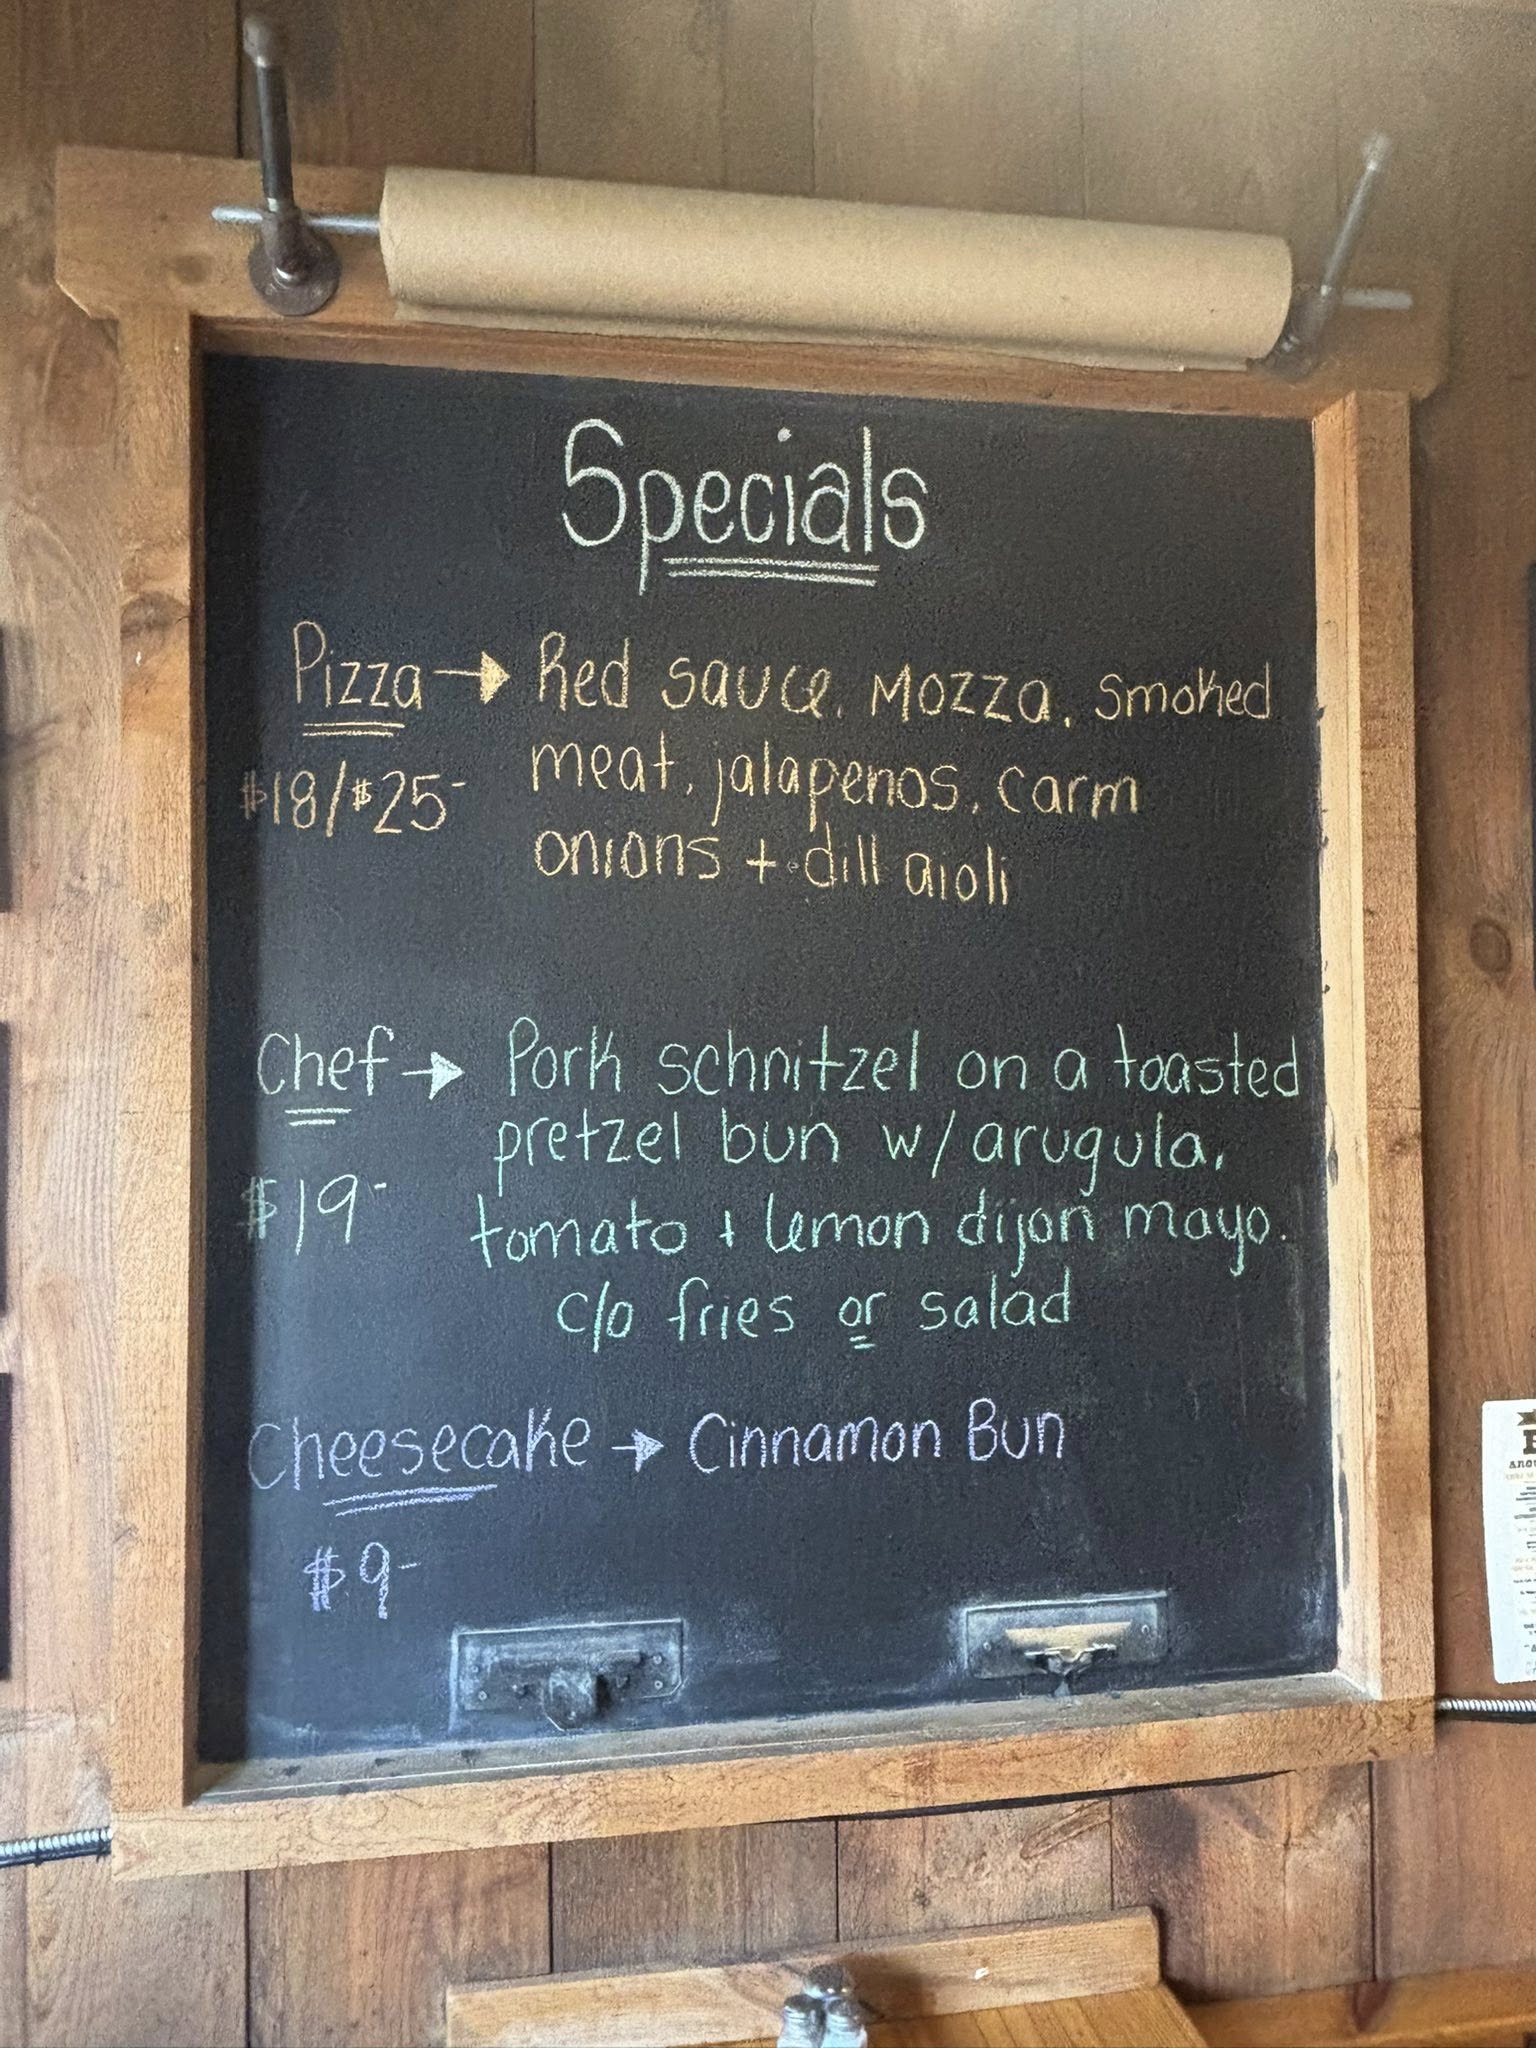 Specials
Pizza → Red sauce, Mozza, smoked
$18/$25- meat, jalapenos, carm
onions + dill aioli
Chef → Pork schnitzel on a toasted
pretzel bun w/arugula,
$19- tomato + lemon dijon mayo.
c/o fries or salad
Cheesecake → Cinnamon Bun
$9-